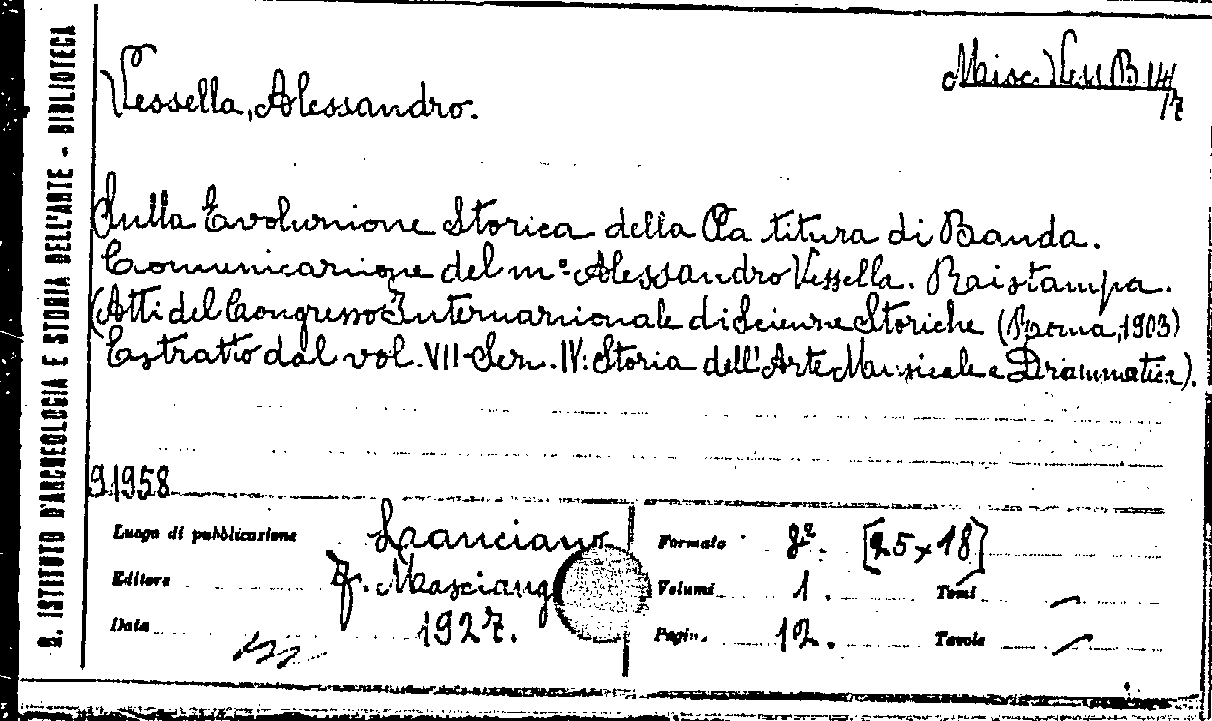 R. ISTITUTO D'ARCHEOLOGIA E STORIA DELL'ARTE - BIBLIOTECA
Misc. Vess. B. 14/7
Vessella, Alessandro.
Sulla Evoluzione Storica della Pa titura di Banda.
Comunicazione del m.º Alessandro Vessella. Ristampa.
(Atti del Congresso Internazionale di Scienze Storiche (Roma, 1903)
Estratto dal vol. VII-Sez. IV: Storia dell'Arte Musicale e Drammatica).
91958
Luogo di pubblicazione Lanciano
Editore Masciang
Data 1927.
Formato 8º. [25 x 18]
Volumi 1. Tomi —
Pagin. 12. Tavole —